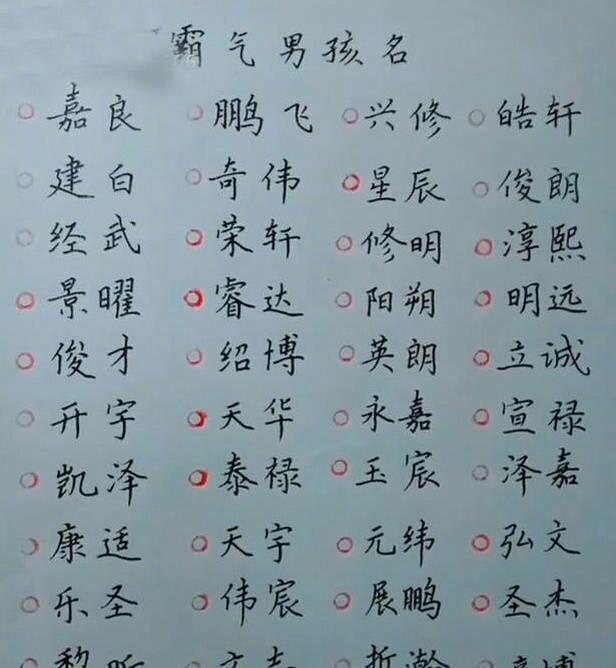 霸气男孩名
嘉良 鹏飞 兴修 皓轩
建白 奇伟 星辰 俊朗
经武 荣轩 修明 淳熙
景曜 睿达 阳朔 明远
俊才 绍博 英朗 立诚
开宇 天华 永嘉 宣禄
凯泽 泰禄 玉宸 泽嘉
康适 天宇 元纬 弘文
乐圣 伟宸 展鹏 圣杰